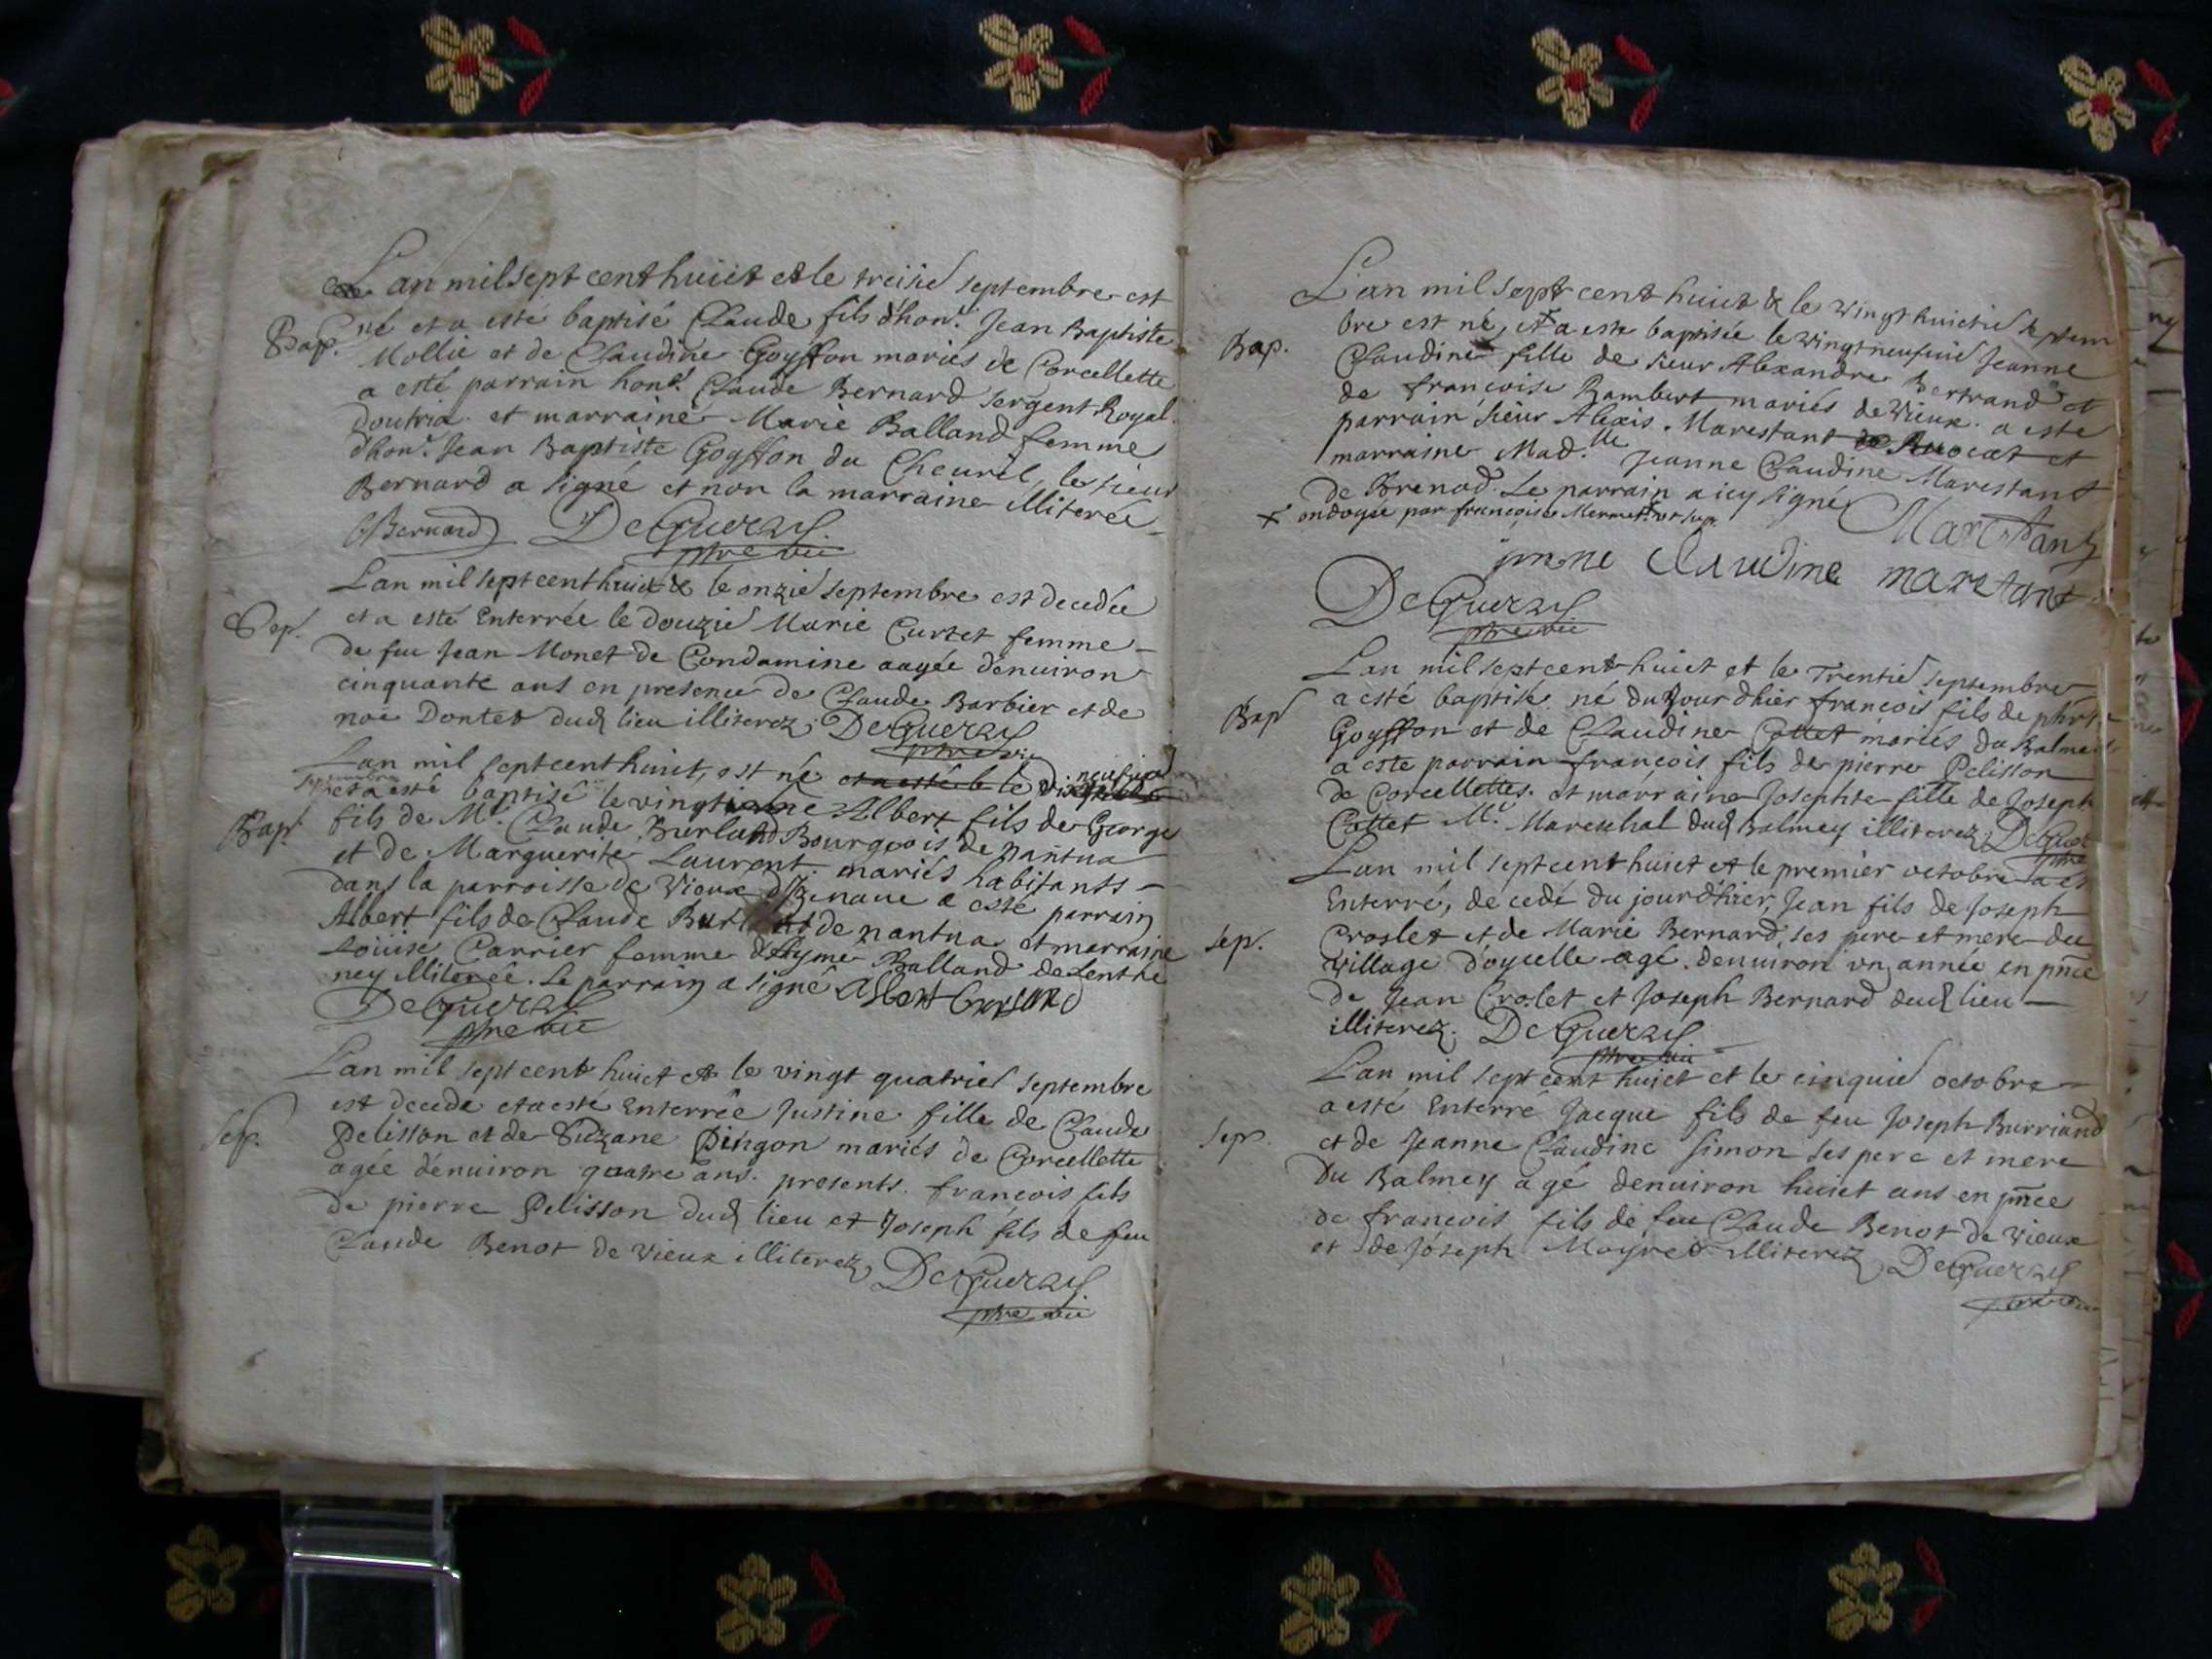 L'an mil sept cent huict et le treizie septembre est
Bap. né et a esté baptisé Claude fils d'hon. Jean Baptiste
Mollie et de Claudine Goyffon mariés de Corcellette
a esté parrain hon. Claude Bernard sergent Royal
doutria et marraine Marie Balland femme
d'hon. Jean Baptiste Goyffon du Cheuril, le sieur
Bernard a signé et non la marraine illiterée
C Bernard DeGuerry
ptre vic
L'an mil sept cent huict & le onzie septembre est decedée
Sep. et a esté Enterrée le douzie Marie Curtet femme
de feu Jean Monet de Condamine aagée denuiron
cinquante ans en presence de Claude Barbier et de
noe Dontet dud lieu illiterez DeGuerry
ptre vic
L'an mil sept cent huict, est né et a esté b le neufuie
septembre et a esté baptisé le vingtieme Albert fils de George
Bap. fils de Mr. Claude Burland Bourgeois de nantua
et de Marguerite Laurent mariés habitants
dans la parroisse de Vieux d'Izenaue a esté parrain
Albert fils de Claude de nantua et marraine
Louise Carrier femme d'Ayme Balland de Lenthe
ney illiterée. Le parrain a signé Albert Burland
DeGuerry
ptre vic
L'an mil sept cent huict et le vingt quatrie septembre
est decede et a esté Enterrée Justine fille de Claude
Sep. Pelisson et de Suzane Pingon mariés de Corcellette
agée denuiron quatre ans. presents. françois fils
de pierre Pelisson dud lieu et Joseph fils de feu
Claude Benot de Vieux illiterez DeGuerry
ptre vic
L'an mil sept cent huict & le vingt huictie septem
bre est né, et a este baptisée le vingt neufuie Jeanne
Bap. Claudine fille de sieur Alexandre Bertrand et
de françoise Rambert mariés de Vieux. a este
parrain sieur Alexis Marestant Auocat et
marraine Mad.lle Jeanne Claudine Marestant
de Brenod. Le parrain a icy signé
+ ondoyée par françoise Mermet ut sup. Marestant
jeanne Claudine marestant
DeGuerry
ptre vic
L'an mil sept cent huict et le Trentie septembre
a esté baptisé né du Jour d'hier françois fils de
Bap Goyffon et de Claudine Cottet mariés du Balmey
a este parrain françois fils de pierre Pelisson
de Corcellettes. et marraine Josephte fille de Joseph
Cottet Mr. Mareschal dud Balmey illiterez
L'an mil sept cent huict et le premier octobre a
Enterré, decedé du jour d'hier, Jean fils de Joseph
Sep. Croslet et de Marie Bernard, ses pere et mere du
village d'oycelle agé denuiron un année en pnce
de Jean Croslet et Joseph Bernard dud lieu
illiterez. DeGuerry
ptre vic
L'an mil sept cent huict et le cinquie octobre
a esté Enterré Jacque fils de feu Joseph Burriand
Sep. et de Jeanne Claudine Simon ses pere et mere
du Balmey agé denuiron huict ans en pnce
de françois fils de feu Claude Benot de Vieux
et de Joseph Moyret illiterez DeGuerry